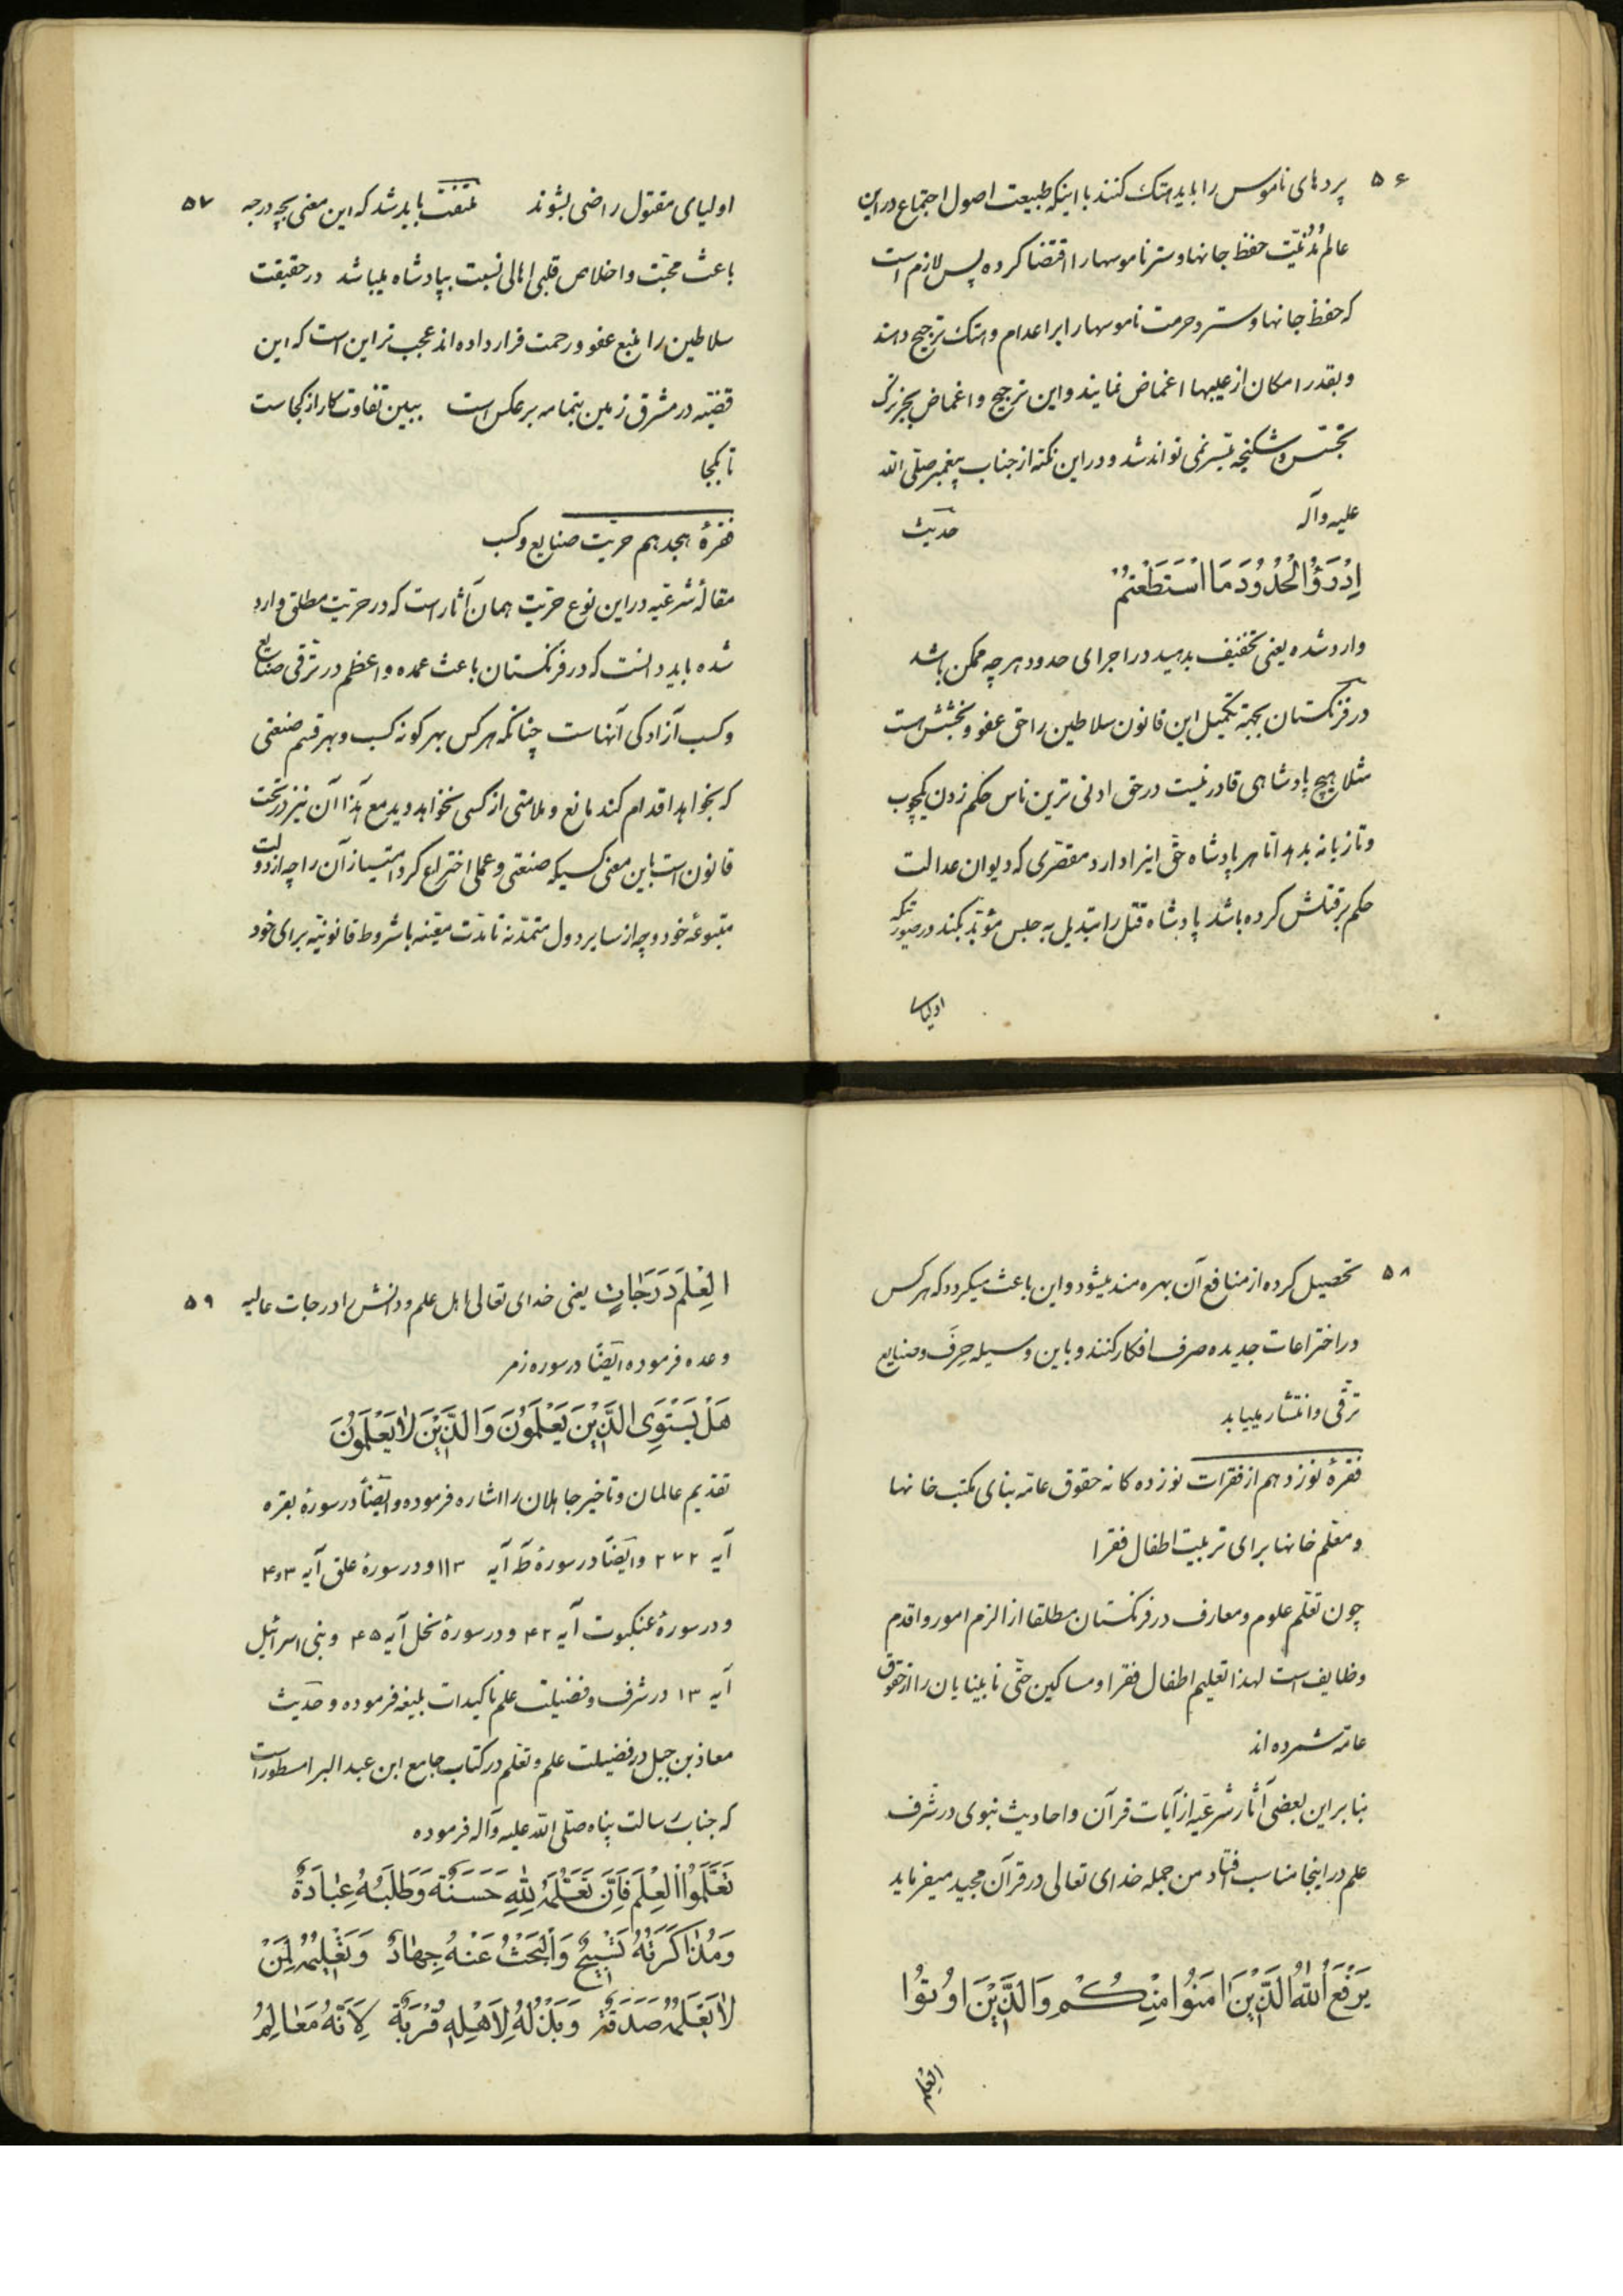 ۵۶
پردهای ناموس را باید هتک کنند با اینکه طبیعت اصول اجتماع در این
عالم مُدُنیّت حفظ جانها و ستر ناموسها را اقتضا کرده پس لازم است
که حفظ جانها و ستر و حرمت ناموسها را بر اعدام و هتک ترجیح دهند
و بقدر امکان از عیبها اغماض نمایند و این ترجیح و اغماض بجز ترک
تجسّس و شکنجه میّسر نمی تواند شد و در این نکته از جناب پیغمبر صلّی الله
علیه و آله حدیث
اِدْرَؤُا الْحُدُودَ مَا اسْتَطَعْتُمْ
وارد شده یعنی تخفیف بدهید در اجرای حدود هر چه ممکن باشد
در فرنگستان بجهة تکمیل این قانون سلاطین را حق عفو و بخشش است
مثلا هیچ پادشاهی قادر نیست در حق ادنی ترین ناس حکم زدن یکچوب
و تازیانه بدهد امّا هر پادشاه حقّ اینرا دارد مقصّری که دیوان عدالت
حکم بر قتلش کرده باشد پادشاه قتل را تبدیل به حبس مؤبّد بکند در صورتیکه
اولیای
۵۷
اولیای مقتول راضی بشوند ملتفت باید شد که این معنی بچه درجه
باعث محبّت و اخلاص قلبی اهالی نسبت بپادشاه میباشد در حقیقت
سلاطین را منبع عفو و رحمت قرار داده اند عجب تر این است که این
قضیّه در مشرق زمین بتمامه بر عکس است ببین تفاوت کار از کجاست
تا بکجا
فقرهٔ هجدهم حرّیت صنایع و کسب
مقالهٔ شرعیّه در این نوع حرّیت همان آثار است که در حرّیت مطلق وارد
شده باید دانست که در فرنگستان باعث عمده و اعظم در ترقی صنایع
و کسب آزادگی آنهاست چنانکه هر کس بهر گونه کسب و بهر قسم صنعتی
که بخواهد اقدام کند مانع و ملامتی از کسی نخواهد دید مع هٰذا آن نیز در تحت
قانون است باین معنی کسیکه صنعتی و عملی اختراع کرد امتیاز آن را چه از دولت
متبوعهٔ خود و چه از سایر دول متمدّنه تا مدّت معیّنه با شروط قانونیّه برای خود
۵۸
تحصیل کرده از منافع آن بهره مند میشود و این باعث میگردد که هر کس
در اختراعات جدیده صرف افکار کنند و باین وسیله حِرَف و صنایع
ترقّی و انتشار مییابد
فقرهٔ نوزدهم از فقرات نوزده گانه حقوق عامّه بنای مکتب خانها
و معلّم خانها برای تربیت اطفال فقرا
چون تعلّم علوم و معارف در فرنگستان مطلقا از الزم امور و اقدم
وظایف است لهذا تعلیم اطفال فقرا و مساکین حتّی نابینایان را از حقوق
عامّه شمرده اند
بنابر این بعضی آثار شرعیّه از آیات قرآن و احادیث نبوی در شرف
علم در اینجا مناسب افتاد من جمله خدای تعالی در قرآن مجید میفرماید
یَرْفَعِ اللّٰهُ الَّذِیْنَ اٰمَنُوا مِنْکُمْ وَ الَّذِیْنَ اُوتُوا
الْعِلْم
۵۹
الْعِلْمَ دَرَجٰاتٍ یعنی خدای تعالی اهل علم و دانش را درجات عالیه
وعده فرموده ایضًا در سوره زمر
هَلْ یَسْتَوِی الَّذِیْنَ یَعْلَمُوْنَ وَ الَّذِیْنَ لاٰ یَعْلَمُوْنَ
تقدیم عالمان و تاخیر جاهلان را اشاره فرموده و ایضًا در سورهٔ بقره
آیه ۲۷۲ و ایضًا در سورهٔ طٓه آیه ۱۱۳ و در سورهٔ علق آیه ۳و۴
و در سورهٔ عنکبوت آیه ۴۲ و در سورهٔ نحل آیه ۴۵ و بنی اسرائیل
آیه ۱۳ در شرف و فضیلت علم تاکیدات بلیغه فرموده و حدیث
معاذ بن جبل در فضیلت علم و تعلّم در کتاب جامع ابن عبد البر امسطور است
که جناب رسالت پناه صلّی الله علیه و آله فرموده
تَعَلَّمُوا الْعِلْمَ فَاِنَّ تَعَلُّمَهُ لِلّٰهِ حَسَنَةٌ وَ طَلَبَهُ عِبٰادَةٌ
وَ مُذٰاکَرَتَهُ تَسْبِیْحٌ وَ الْبَحْثُ عَنْهُ جِهٰادٌ وَ تَعْلِیْمَهُ لِمَنْ
لاٰ یَعْلَمُهُ صَدَقَةٌ وَ بَذْلَهُ لِاَهْلِهِ قُرْبَةٌ لِاَنَّهُ مَعٰالِمُ